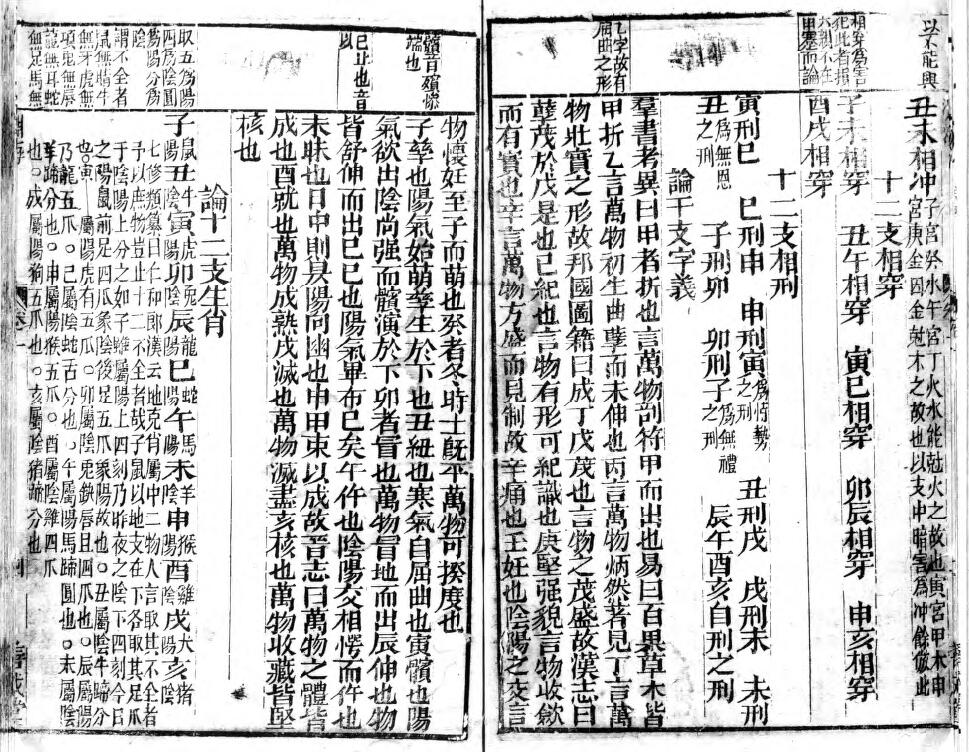 丑未相冲子宫癸水午宫丁火水能尅火之故也寅宫甲木申
宫庚金因金尅木之故也以支中暗害為冲餘倣此
十二支相穿
子未相穿 丑午相穿 寅巳相穿 卯辰相穿 申亥相穿
酉戌相穿
十二支相刑
寅刑巳 巳刑申 申刑寅為恃勢之刑 丑刑戌 戌刑未 未刑
丑為無恩之刑 子刑卯 卯刑子為無禮之刑 辰午酉亥自刑之刑
論干支字義
羣書考異曰甲者拆也言萬物剖符甲而出也易曰百果草木皆
甲拆乙言萬物初生曲孽而未伸也丙言萬物炳然著見丁言萬
物壯實之形故邦國圖籍曰成丁戊茂也言物之茂盛故漢志曰
孽茂於戊是也己紀也言物有形可紀識也庚堅强貌言物收歛
而有實也辛言萬物方盛而見制故辛痛也壬妊也陰陽之交言
以不能與
相穿為害
犯此者損
六親不在
甲選而論
乙字故有
屈曲之形
物懷妊至子而萌也癸者冬時土旣平萬物可揆度也
子孳也陽氣始萌孳生於下也丑紐也寒氣自屈曲也寅髕也陽
氣欲出陰尚强而髕演於下卯者冒也萬物冒地而出辰伸也物
皆舒伸而出巳巳也陽氣畢布巳矣午仵也陰陽交相愕而仵也
未眛也日中則昃陽向幽也申申束以成故晉志曰萬物之體皆
成也酉就也萬物成熟戌滅也萬物滅盡亥核也萬物收藏皆堅
核也
論十二支生肖
子鼠陽丑牛陰寅虎陽卯兎陰辰龍陽巳蛇陽午馬陽未羊陰申猴陽酉雞陰戌犬陽亥猪陰
七修類藁曰仁和郎漢云地克肖屬中二物人言取其不全者
予以庶物豈止十二不全者哉子鼠以地支在下各取其足爪
于陰陽上分之如子雖屬陽上四刻乃昨夜之陰下四刻今日
之陽鼠前足四爪象陰後足五爪象陽故也○丑屬陰牛蹄分
也○寅屬陽虎有五爪○卯屬陰兎缺唇且四爪也○辰屬陽
乃龍五爪○巳屬陰蛇舌分也○午屬陽馬蹄圓也○未屬陰
羊蹄分也○申屬陽猴五爪○酉屬陰雞四爪
也○戌屬陽狗五爪也○亥屬陰猪蹄分也
髕音殯儐
端也
巳止也音
以
取五為陽
四為陰圓
為陽分為
陰
謂不全者
鼠無牙牛
無牙虎無
項兎無唇
龍無耳蛇
無足馬無